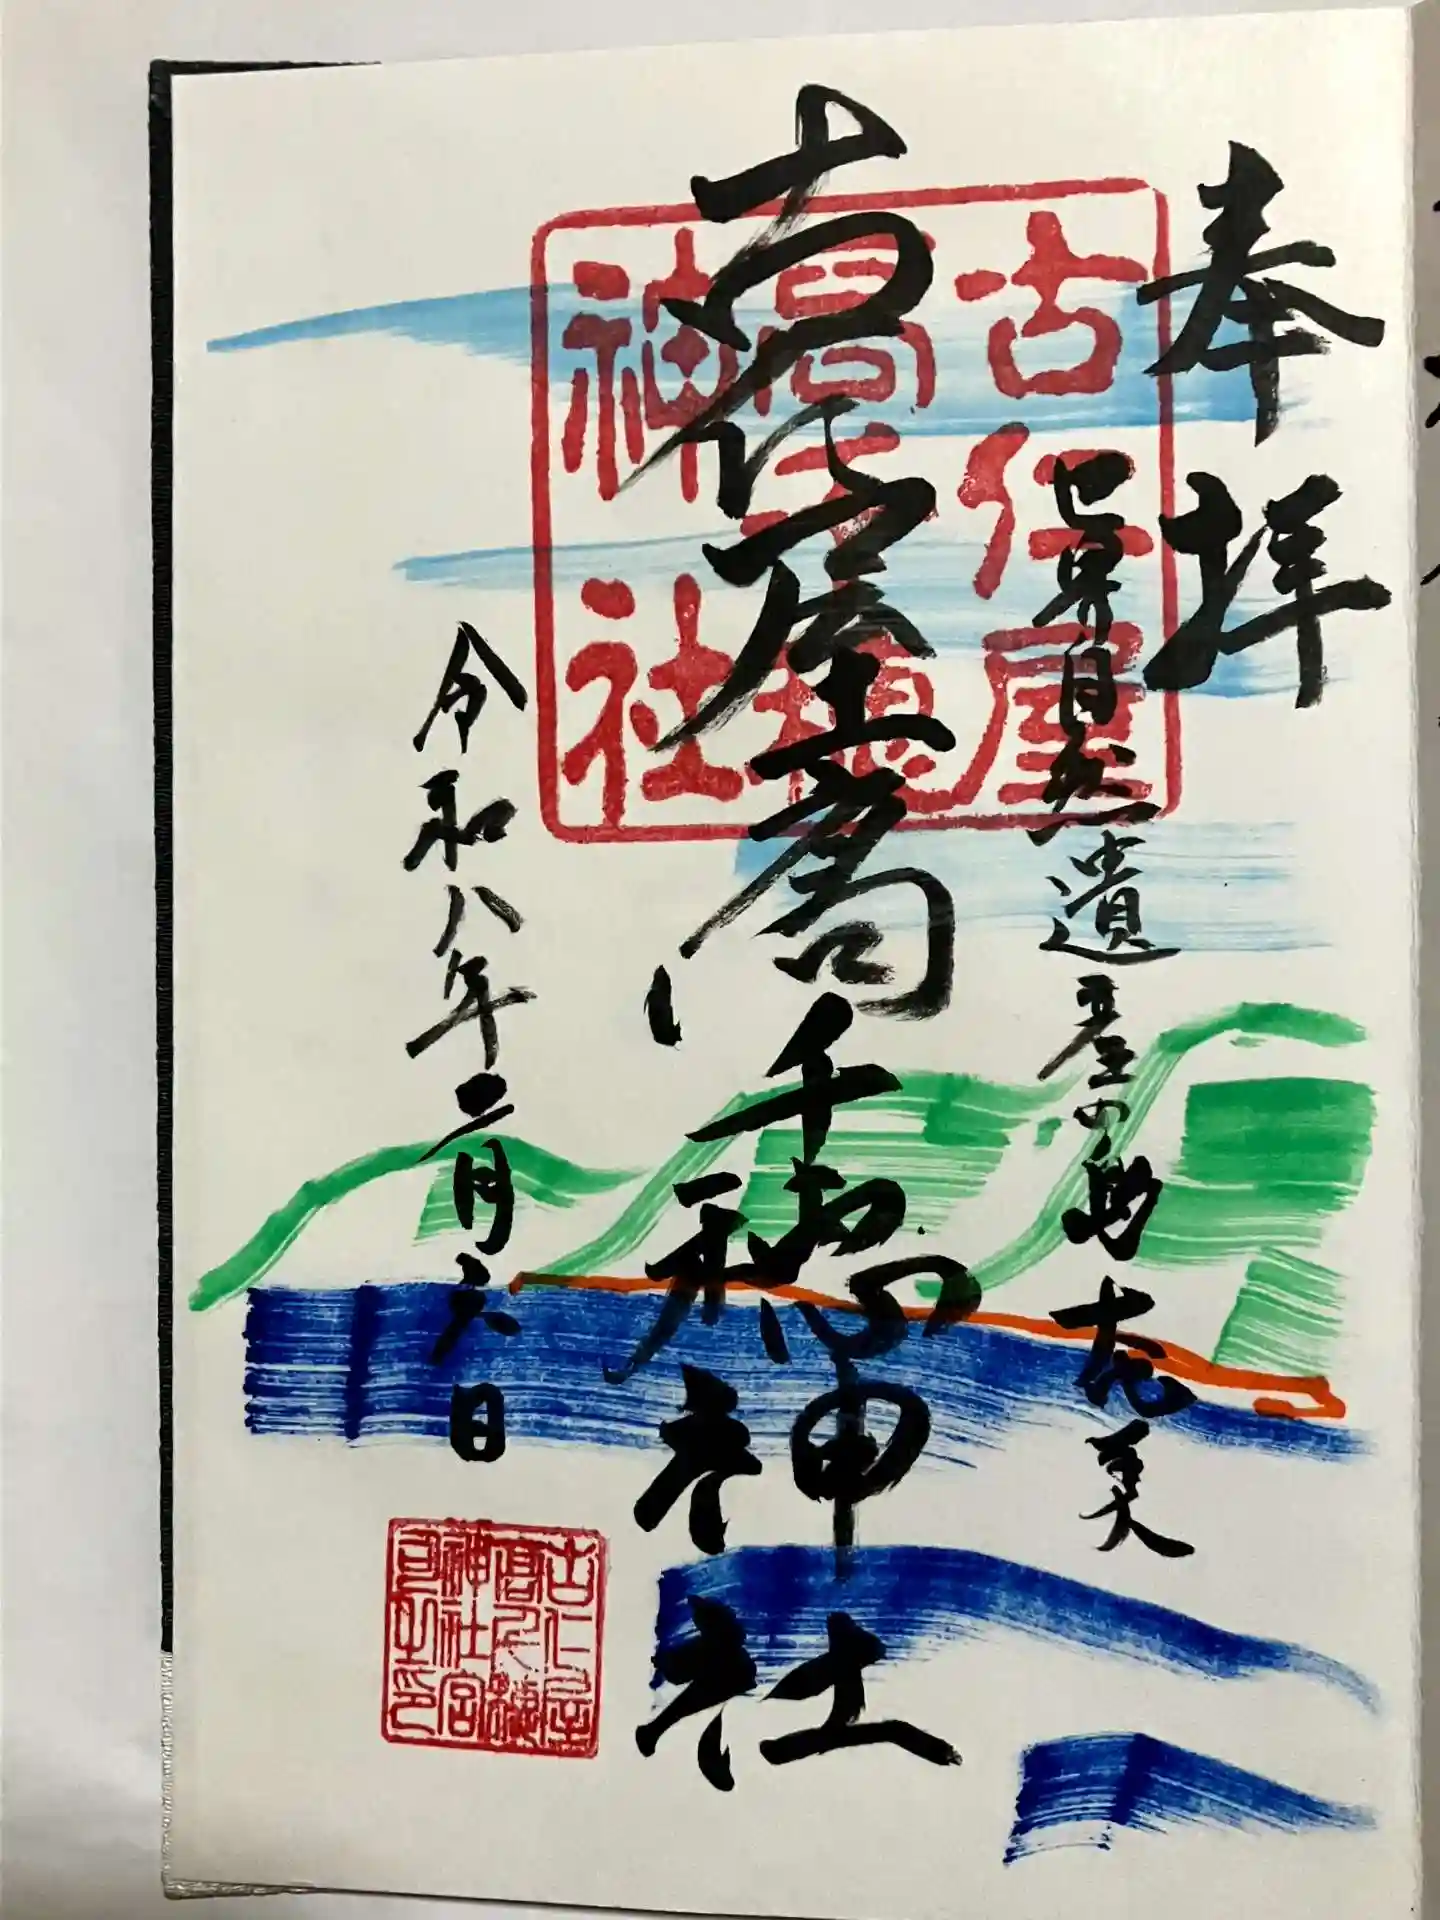 奉拝
世界自然遺産の島奄美
古仁屋高千穂神社
令和八年二月六日
古仁屋
高千穂
神社
古仁屋
高千穂
神社宮
司之印